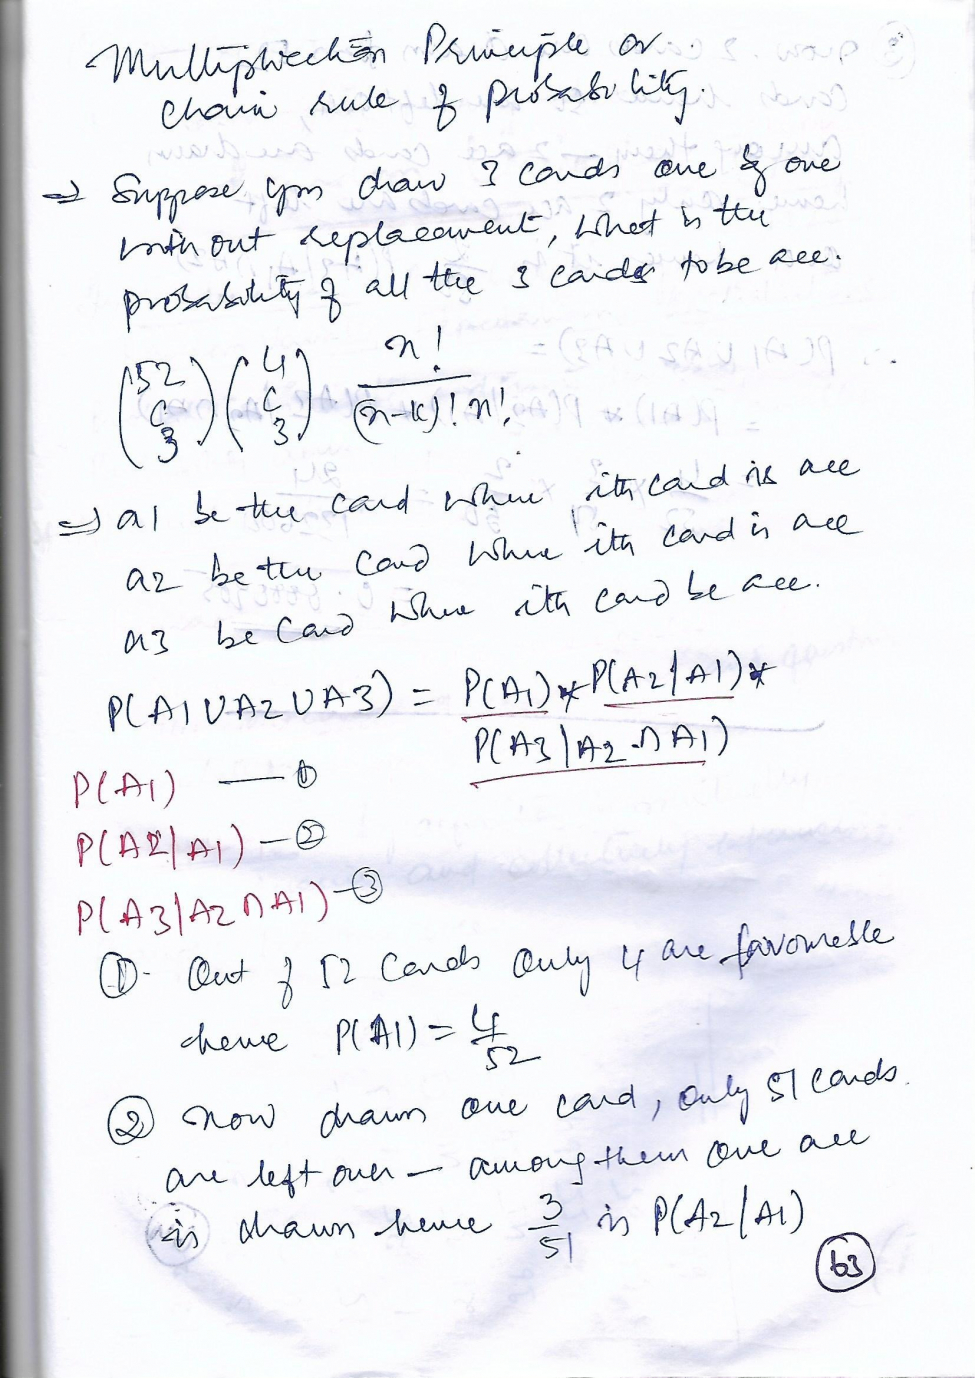 Multiplication Principle or
Chain rule of probability.
⇒ Suppose you draw 3 cards one by one
without replacement, what is the
probability of all the 3 cards to be ace.
(52 C 3) (4 C 3) n! / (n-k)! n!
⇒ a1 be the card where ith card is ace
a2 be the card where ith card is ace
a3 be card where ith card be ace.
P(A1 U A2 U A3) = P(A1) * P(A2|A1) *
P(A3|A2 ∩ A1)
P(A1) — ①
P(A2|A1) — ②
P(A3|A2 ∩ A1) — ③
①- Out of 52 cards only 4 are favourable
hence P(A1) = 4/52
② now drawn one card, only 51 cards.
are left over — among them one ace
is drawn hence 3/51 is P(A2/A1)
63